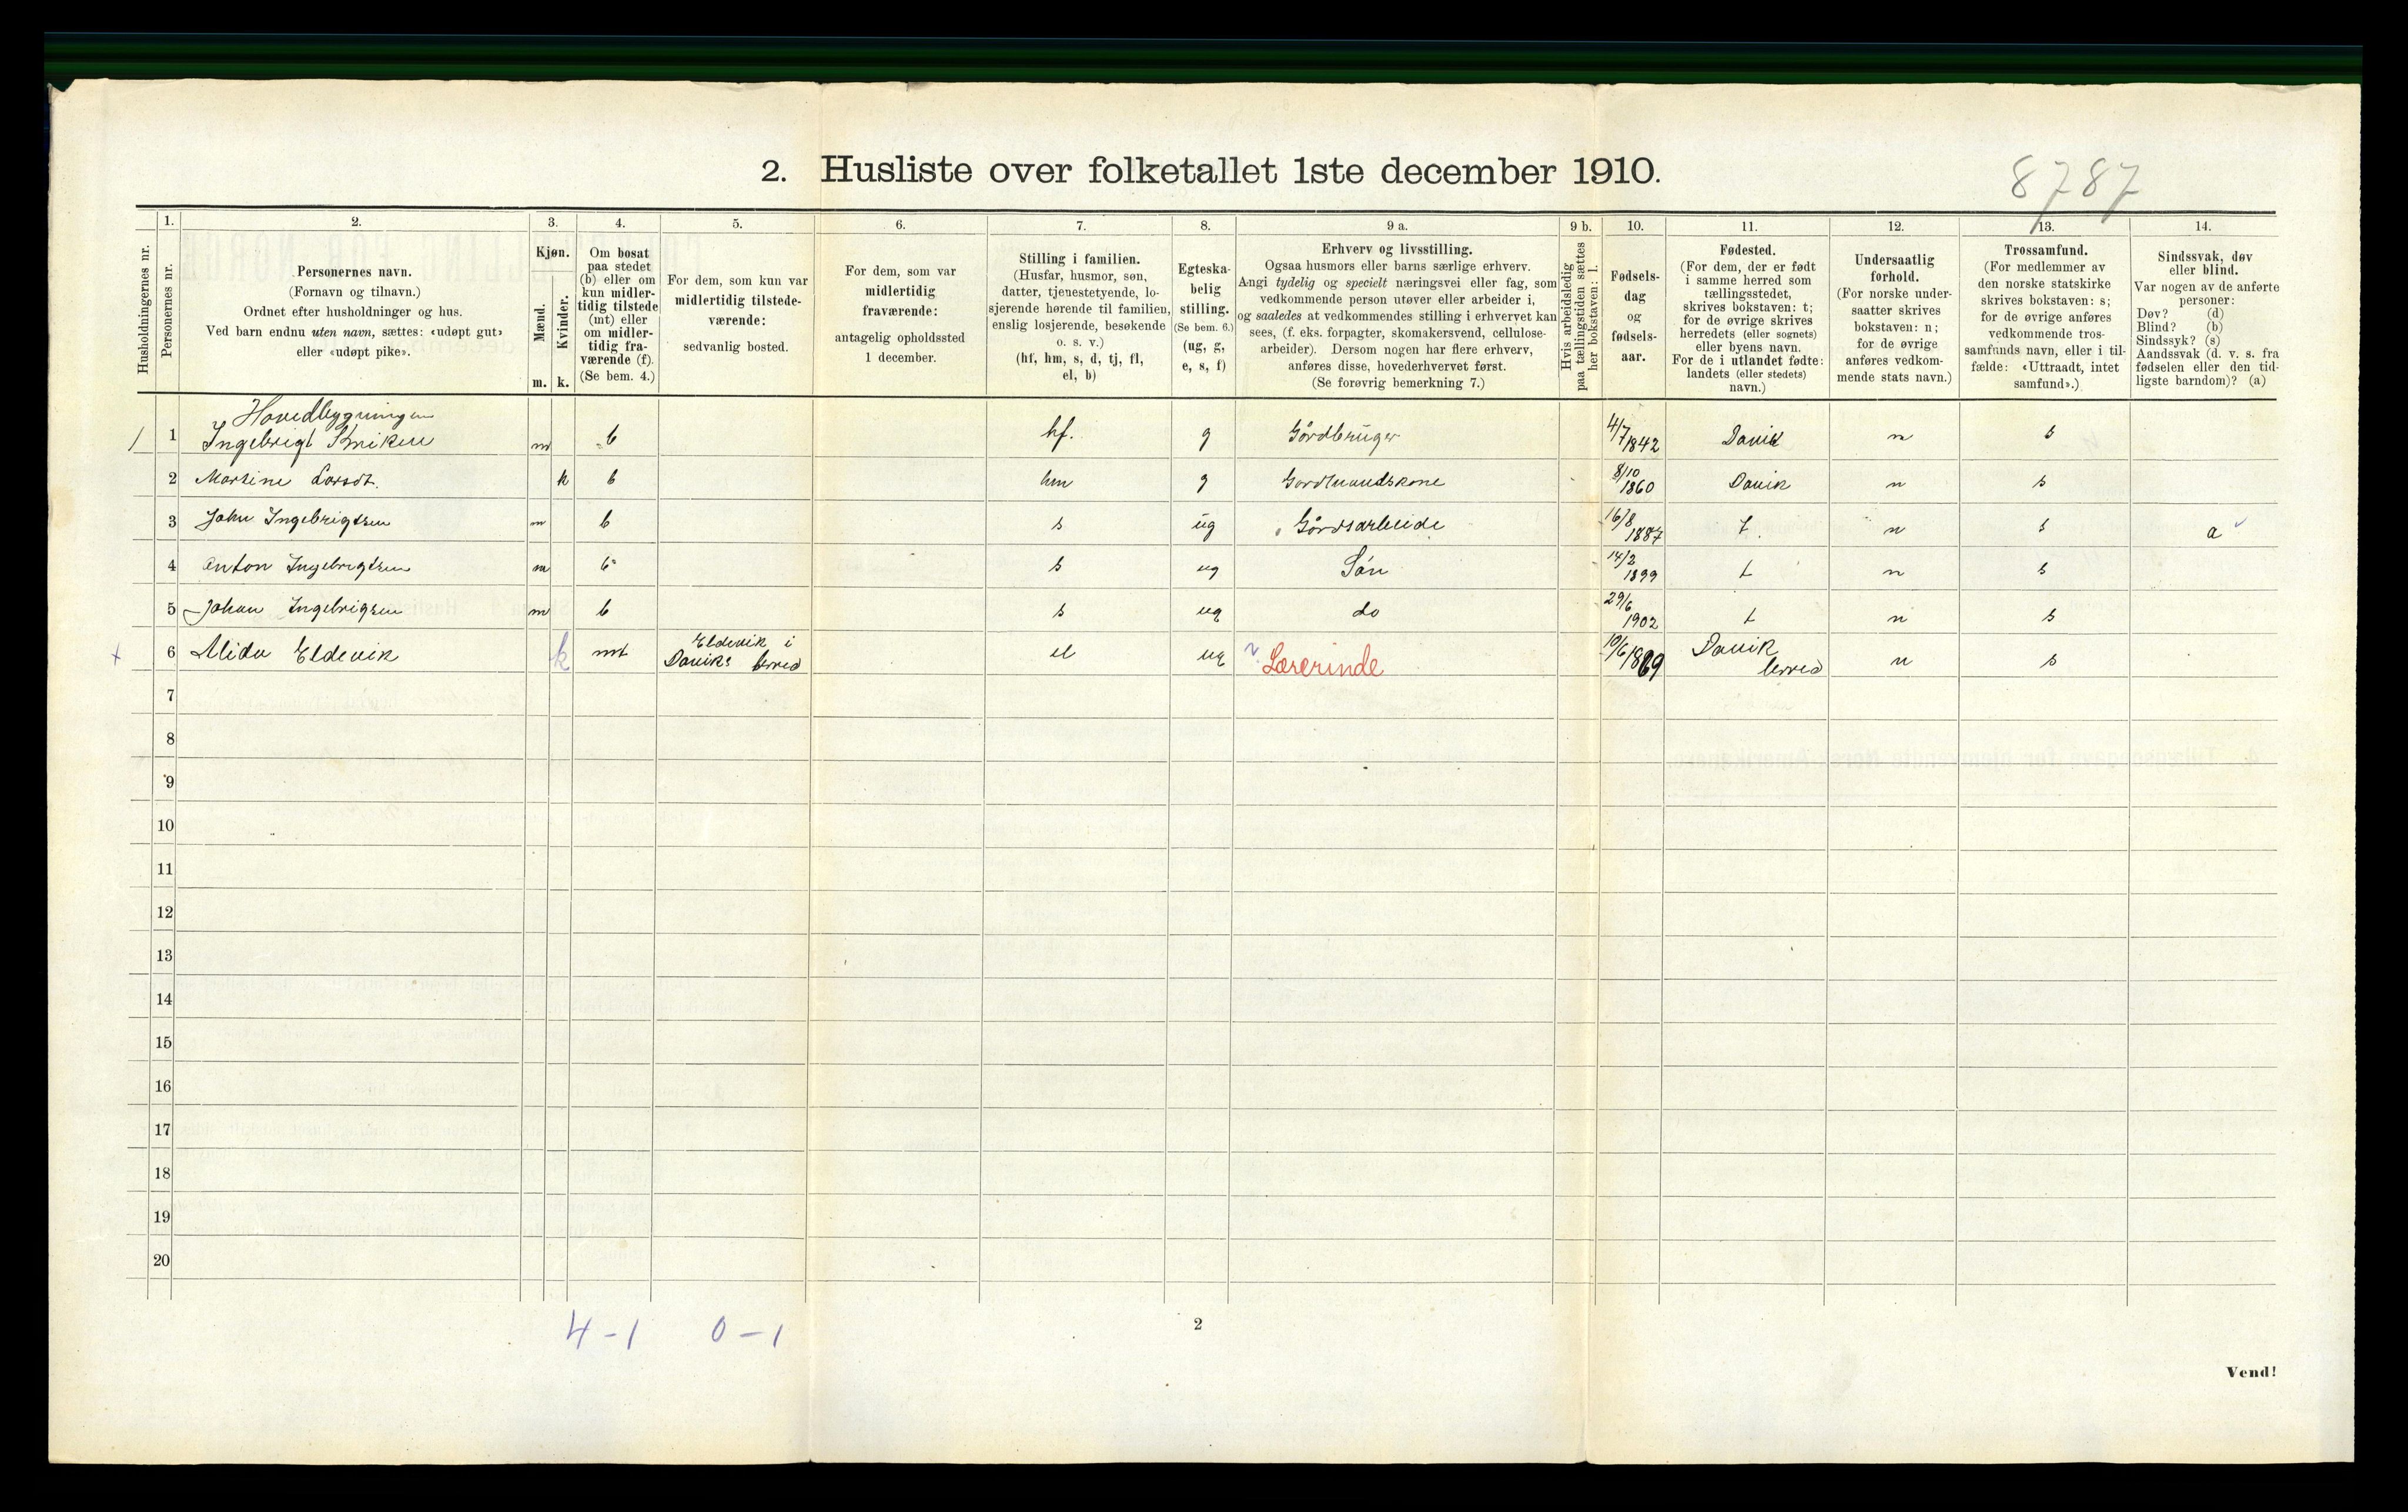 2. Husliste over folketallet 1ste december 1910.
8787
Husholdningernes nr.
1.
Personernes nr.
2.
Personernes navn.
(Fornavn og tilnavn.)
Ordnet efter husholdninger og hus.
Ved barn endnu uten navn, sættes: «udøpt gut»
eller «udøpt pike».
3.
Kjøn.
Mænd.
Kvinder.
m. k.
4.
Om bosat
paa stedet
(b) eller om
kun midler-
tidig tilstede
(mt) eller
om midler-
tidig fra-
værende (f).
(Se bem. 4.)
5.
For dem, som kun var
midlertidig tilstede-
værende:
sedvanlig bosted.
6.
For dem, som var
midlertidig
fraværende:
antagelig opholdssted
1 december.
7.
Stilling i familien.
(Husfar, husmor, søn,
datter, tjenestetyende, lo-
sjerende hørende til familien,
enslig losjerende, besøkende
o. s. v.)
(hf, hm, s, d, tj, fl,
el, b)
8.
Egteska-
belig
stilling.
(Se bem. 6.)
(ug, g,
e, s, f)
9 a.
Erhverv og livsstilling.
Ogsaa husmors eller barns særlige erhverv.
Angi tydelig og specielt næringsvei eller fag, som
vedkommende person utøver eller arbeider i,
og saaledes at vedkommendes stilling i erhvervet kan
sees, (f. eks. forpagter, skomakersvend, cellulose-
arbeider). Dersom nogen har flere erhverv,
anføres disse, hovederhvervet først.
(Se forøvrig bemerkning 7.)
9 b.
Hvis arbeidsledig
paa tællingstiden sættes
her bokstaven: l.
10.
Fødsels-
dag
og
fødsels-
aar.
11.
Fødested.
(For dem, der er født
i samme herred som
tællingsstedet,
skrives bokstaven: t;
for de øvrige skrives
herredets (eller sognets)
eller byens navn.
For de i utlandet fødte:
landets (eller stedets)
navn.)
12.
Undersaatlig
forhold.
(For norske under-
saatter skrives
bokstaven: n;
for de øvrige
anføres vedkom-
mende stats navn.)
13.
Trossamfund.
(For medlemmer av
den norske statskirke
skrives bokstaven: s;
for de øvrige anføres
vedkommende tros-
samfunds navn, eller i til-
fælde: «Uttraadt, intet
samfund».)
14.
Sindssvak, døv
eller blind.
Var nogen av de anførte
personer:
Døv? (d)
Blind? (b)
Sindssyk? (s)
Aandssvak (d. v. s. fra
fødselen eller den tid-
ligste barndom)? (a)
Hovedbygningen
1 1 Ingebrigt m b hf. g Gårdbruger 4/7 1842 Davik n s
2 Martine Larsdt. k b hm g Gardmandskone 8/10 1860 Davik n s
3 John Ingebrigtsen m b s ug Gårdsarbeide 16/8 1887 t n s a
4 Anton Ingebrigtsen m b s ug Søn 14/2 1899 t n s
5 Johan Ingebrigsen m b s ug do 29/6 1902 t n s
6 Alida Eldevik k mt Eldevik i Daviks herred el ug Lærerinde 10/6 1869 Davik herred n s
7
8
9
10
11
12
13
14
15
16
17
18
19
20
4-1 0-1
2
Vend!